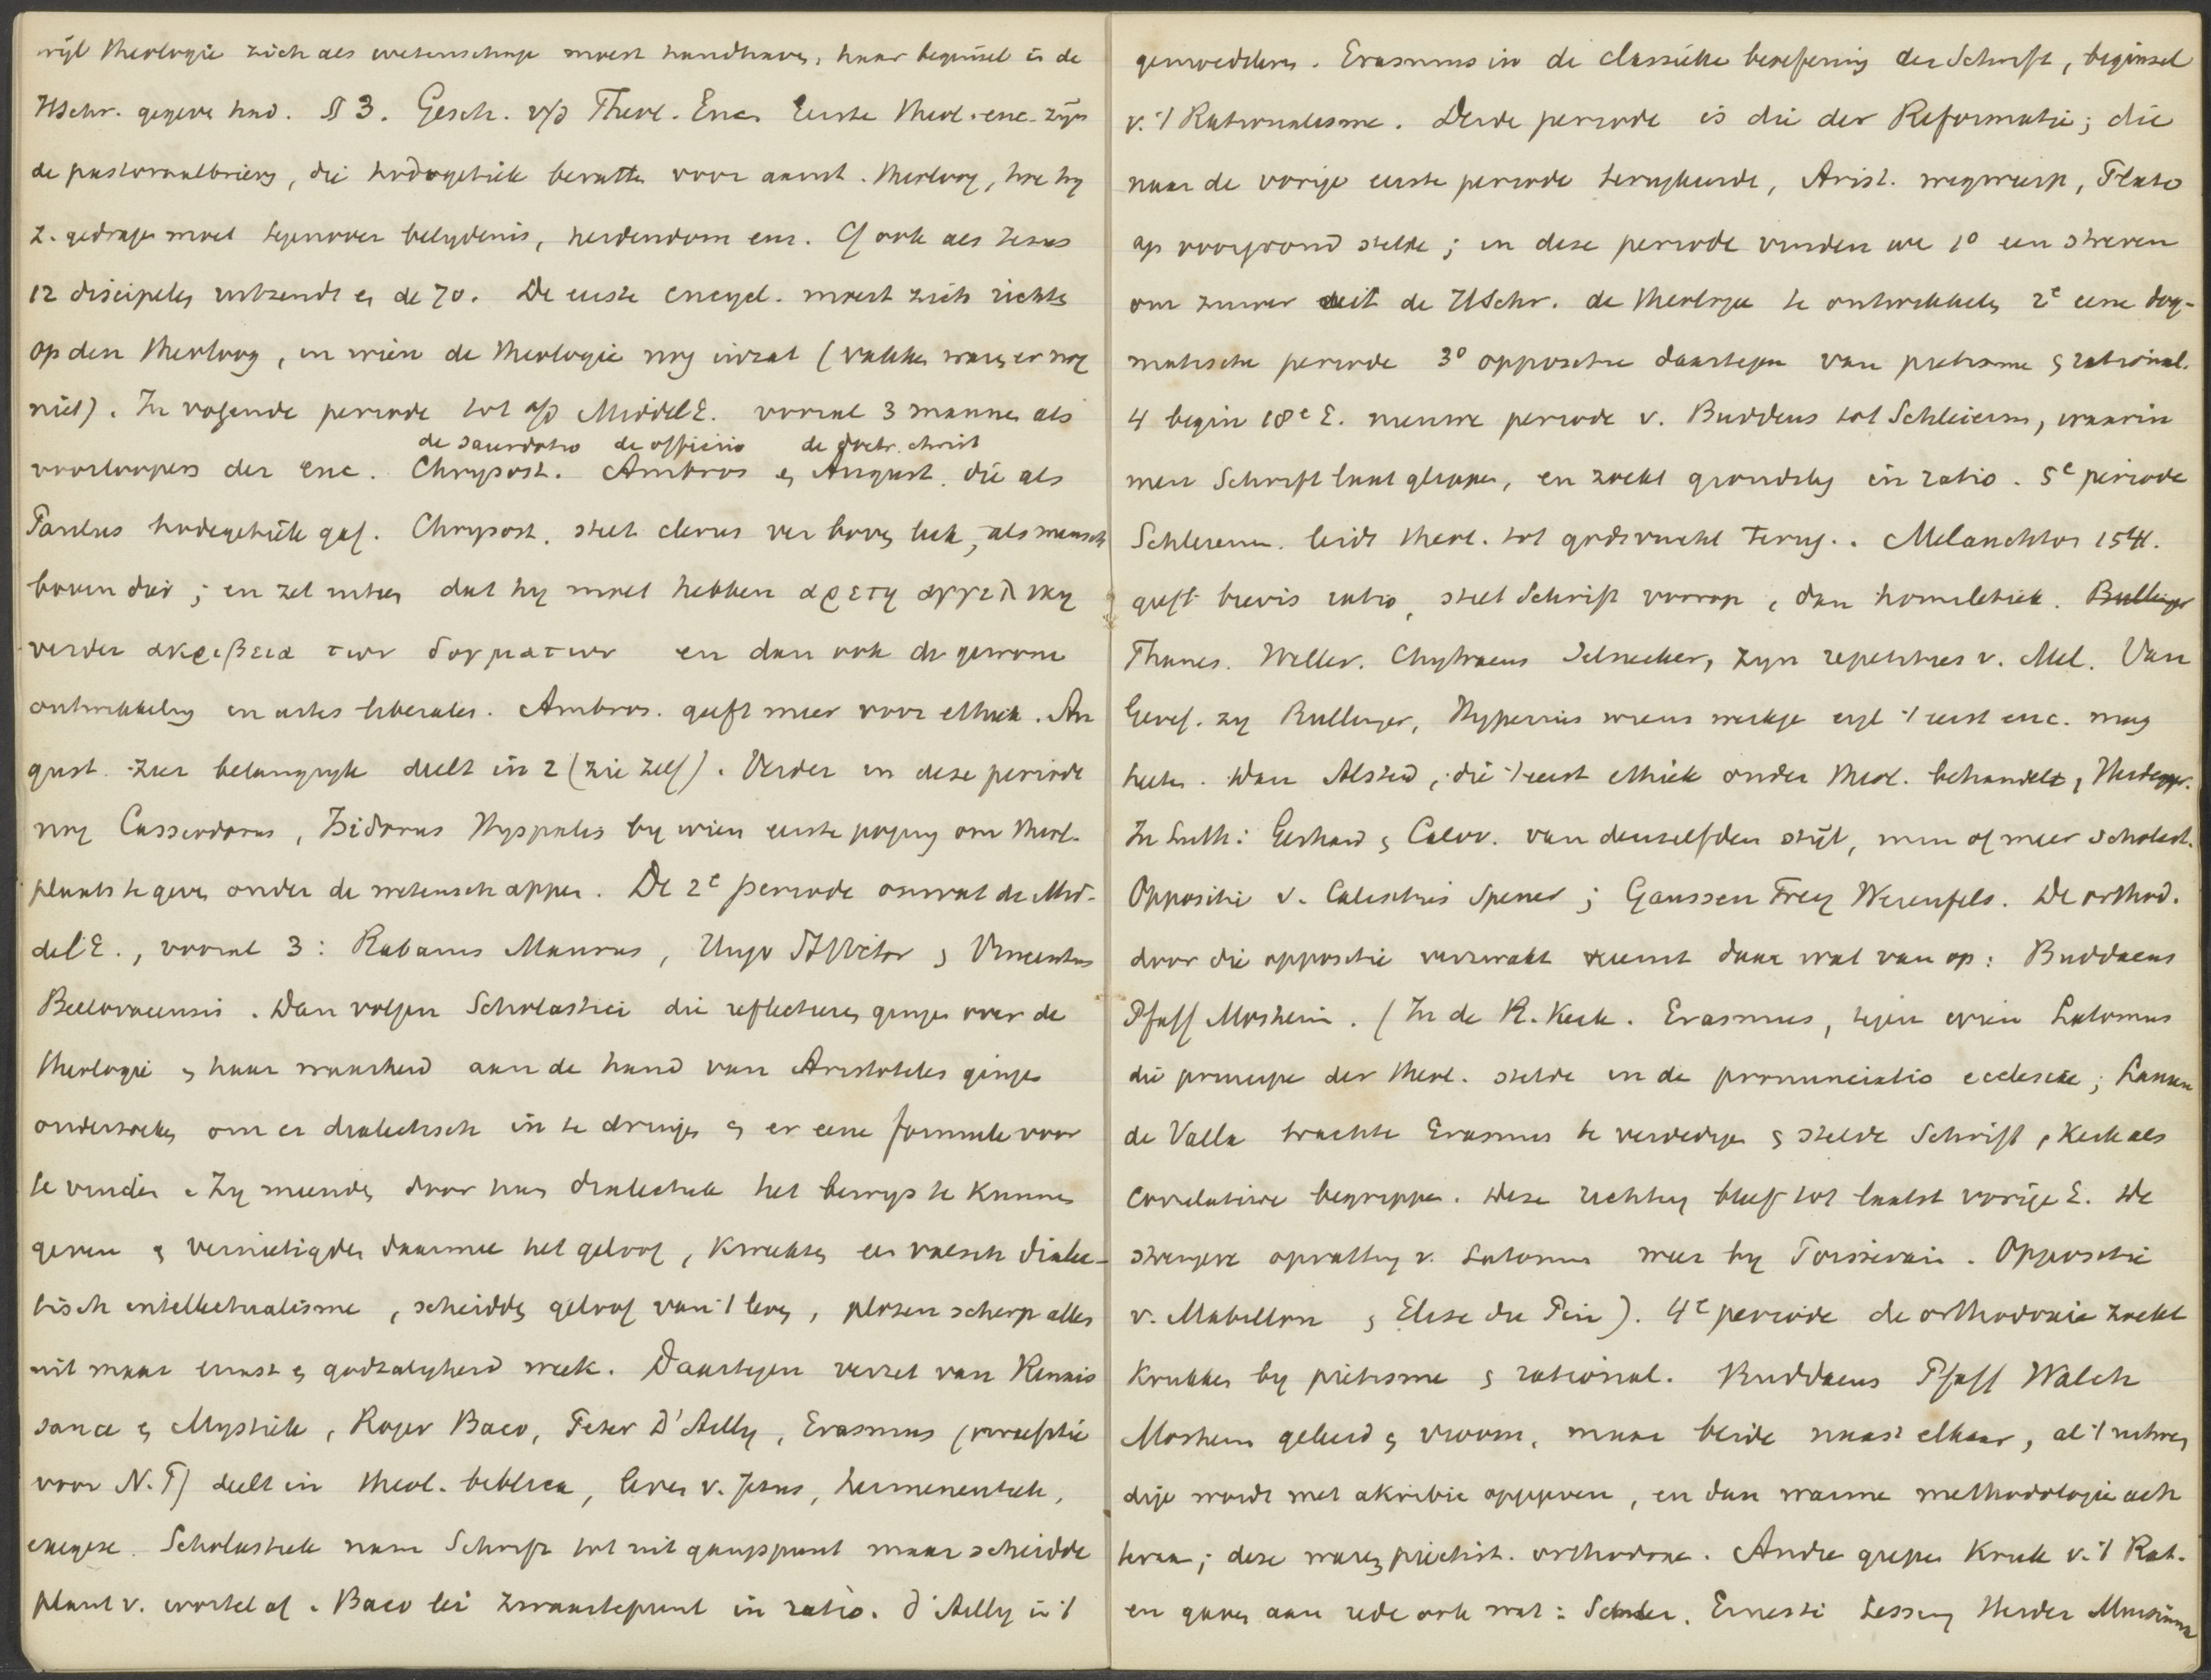 wijl theologie zich als wetenschap moest handhaven, haar beginsel in de
HSchr. gegeven had. § 3. Gesch. v/d Theol. Enc. Eerste theol. enc. zijn
de pastoraalbrieven, die hodogetiek bevatten voor aanst. theoloog, hoe hij
z. gedragen moet tegenover belydenis, heidendom enz. Of ook als Jezus
12 discipelen uitzendt en de 70. De eerste encycl. moest zich richten
op den theoloog, in wien de theologie nog inzat (vakken waren er nog
niet). In volgende periode tot a/d MiddelE. vooral 3 mannen als
de sacerdotio de officiis de doctr. christ
voorloopers der Enc. Chrysost. Ambros en August. die als
Paulus hodegetiek gaf. Chrysost. stelt clerus ver boven leek, als mensch
boven dier; en zet uiteen dat hij moet hebben αρετη αγγελικη
verder ακριβεια των δογματων en dan ook de gewone
ontwikkeling in artes liberales. Ambros. geeft meer voor ethiek. Au
gust. zeer belangryk deelt in 2 (zie zelf). Verder in deze periode
nog Cassiodorus, Isidorus Hyspalis by wien eerste poging om theol.
plaats te geven onder de wetenschappen. De 2e periode omvat de Mid-
delE., vooral 3: Rabanus Maurus, Hugo St Victor en Vincentius
Bellovacensis. Dan volgen Scholastici die reflecteren gingen over de
theologie en haar waarheid aan de hand van Aristoteles gingen
onderzoeken om er dialectisch in te dringen en er eene formule voor
te vinden. Zy meenden door hun dialectiek het bewys te kunnen
geven en vernietigden daarmee het geloof, kweekten een valsch dialec-
tisch intellectualisme, scheidden geloof van 't leven, plozen scherp alles
uit maar ernst en godzaligheid week. Daartegen verzet van Renais
sance en Mystiek, Roger Baco, Peter D'Ailly, Erasmus (voorrede
voor N.T) deelt in theol. biblica, leven v. Jezus, hermeneutiek,
exegese. Scholastiek nam Schrift tot uitgangspunt maar scheidde
plant v. wortel af. Baco lei zwaartepunt in ratio. d'Ailly in 't
gemoedsleven. Erasmus in de classieke beoefening der Schrift, beginsel
v. 't Rationalisme. Derde periode is die der Reformatie; die
naar de vorige eerste periode terugkeerde, Arist. wegwierp, Plato
op voorgrond stelde; in deze periode vinden we 1o een streven
om zuiver uit de HSchr. de theologie te ontwikkelen 2e eene dog-
matische periode 3o oppositie daartegen van pietisme en rational.
4 begin 18e E. nieuwe periode v. Buddeus tot Schleierm, waarin
men Schrift laat glippen, en zoekt grondslag in ratio. 5e periode
Schleierm. leidt theol. tot godsvrucht terug. Melanchton 1541.
geeft brevis ratio, stelt Schrift voorop, dan homiletiek. Bullinger
Thames. Weller. Chytraeus Selnecker, zyn repetities v. Mel. Van
Geref. zy Bullinger, Hyperius wiens werkje eigl. 't eerst enc. mag
heeten. Dan Alsted, die 't eerst ethiek onder theol. behandelt, Heidegger.
In Luth: Gerhard en Calov. van denzelfden stijl, min of meer scholast.
Oppositie v. Calixtus Spener; Gaussen Frey Werenfels. De orthod.
door die oppositie verzwakt neemt daar wat van op: Buddaeus
Pfaff Mosheim. (In de R. Kerk. Erasmus, tegen wien Latomus
die principe der theol. stelde in de pronunciatio ecclesiae; Lauren
de Valla trachtte Erasmus te verdedigen en stelde Schrift en Kerk als
correlatieve begrippen. Deze richting bleef tot laatst vorige E. De
strengere opvatting v. Latomus weer by Possevin. Oppositie
v. Mabillon en Elise du Pin). 4e periode de orthodoxie zoekt
krukken by pietisme en rational. Buddaeus Pfaff Walch
Mosheim geleerd en vroom, maar beide naast elkaar, al 't notwen
dige wordt met akribie opgegeven, en dan warme methodologie ach
teraan; deze waren pietist. orthodoxe. Andre grepen kruk v. 't Rat.
en gaven aan rede ook wat: Semler. Ernesti Lessing Herder Mursinna